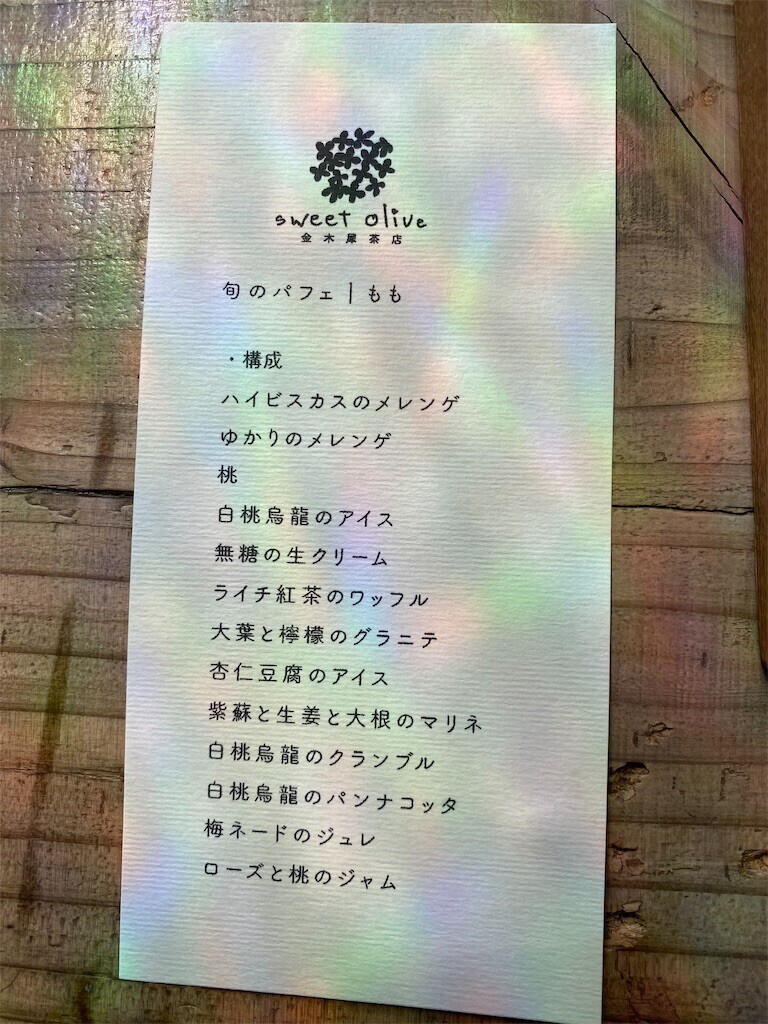 sweet olive
金木犀茶店
旬のパフェ|もも
・構成
ハイビスカスのメレンゲ
ゆかりのメレンゲ
桃
白桃烏龍のアイス
無糖の生クリーム
ライチ紅茶のワッフル
大葉と檸檬のグラニテ
杏仁豆腐のアイス
紫蘇と生姜と大根のマリネ
白桃烏龍のクランブル
白桃烏龍のパンナコッタ
梅ネードのジュレ
ローズと桃のジャム